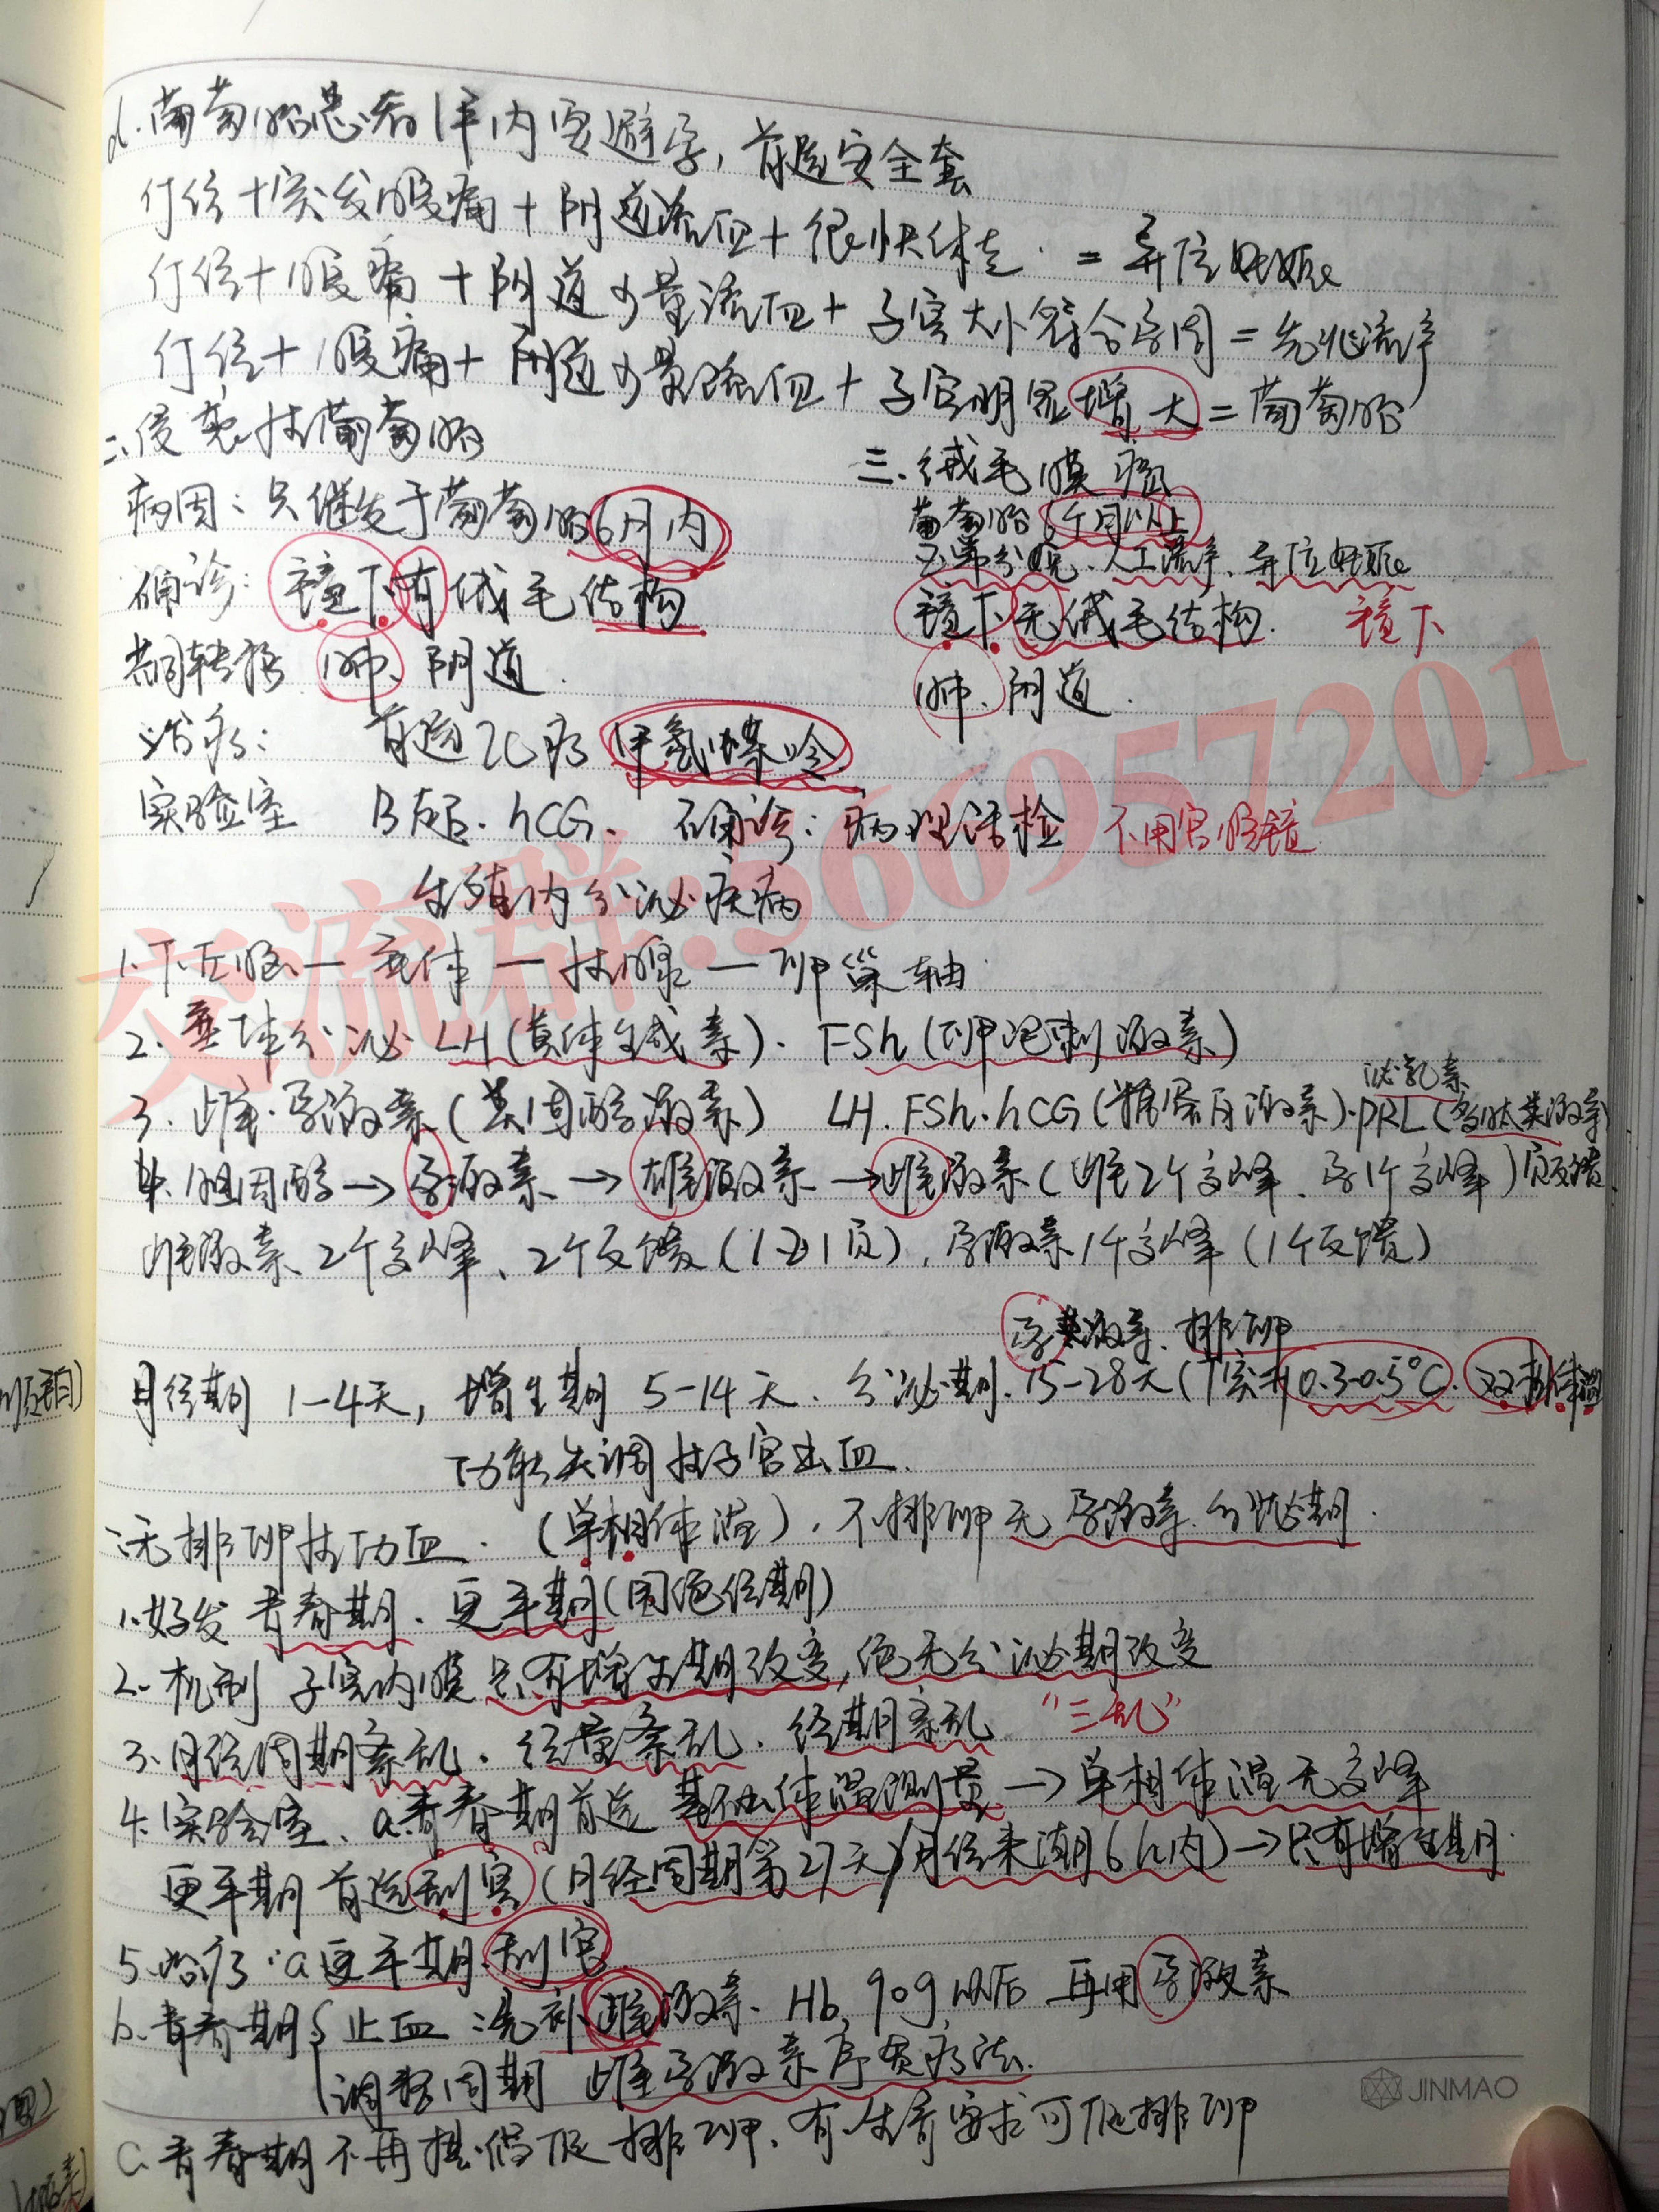 d.葡萄胎患者1年内要避孕,首选安全套
停经+突发腹痛+阴道流血+很快休克=异位妊娠
停经+腹痛+阴道少量流血+子宫大小符合孕周=先兆流产
停经+腹痛+阴道少量流血+子宫明显增大=葡萄胎
二、侵袭性葡萄胎
病因:只继发于葡萄胎6月内
确诊:镜下有绒毛结构
都转移 肺、阴道.
治疗: 首选化疗 甲氨喋呤
实验室 B超.hCG. 确诊:病理活检 不用宫腔镜
三、绒毛膜癌
葡萄胎 个月以上
正常分娩、人工流产、异位妊娠
镜下无绒毛结构. 镜下
肺、阴道.
生殖内分泌疾病
1.下丘脑—垂体—性腺—卵巢轴
2.垂体分泌LH(黄体生成素)、FSh(卵泡刺激素)
3.雌.孕激素(类固醇激素) LH.FSh.hCG(糖蛋白激素).PRL(多肽类激素)
泌乳素
4.胆固醇→孕激素→雄激素→雌激素(雌2个高峰、孕1个高峰)负反馈
雌激素2个高峰、2个反馈(1正1负),孕激素1个高峰(1个反馈)
孕激素、排卵
月经期1-4天,增生期5-14天.分泌期.15-28天(突升0.3-0.5°C.双相体温
功能失调性子宫出血.
一:无排卵性功血.(单相体温),不排卵无孕激素.分泌期.
1.好发青春期、更年期(围绝经期)
2.机制 子宫内膜只有增生期改变,绝无分泌期改变
3.月经周期紊乱.经量紊乱.经期紊乱 “三乱”
4.实验室、a.青春期首选基础体温测量→单相体温无高峰
更年期首选刮宫(月经周期第27天/月经来潮6h内)→只有增生期.
5.治疗:a更年期刮宫.
b.青春期{止血:先补雌激素、Hb,90g以后 再用孕激素
调整周期 雌孕激素序贯疗法.
c.青春期不再提倡促排卵、有生育要求可促排卵
JINMAO
交流群:566957201